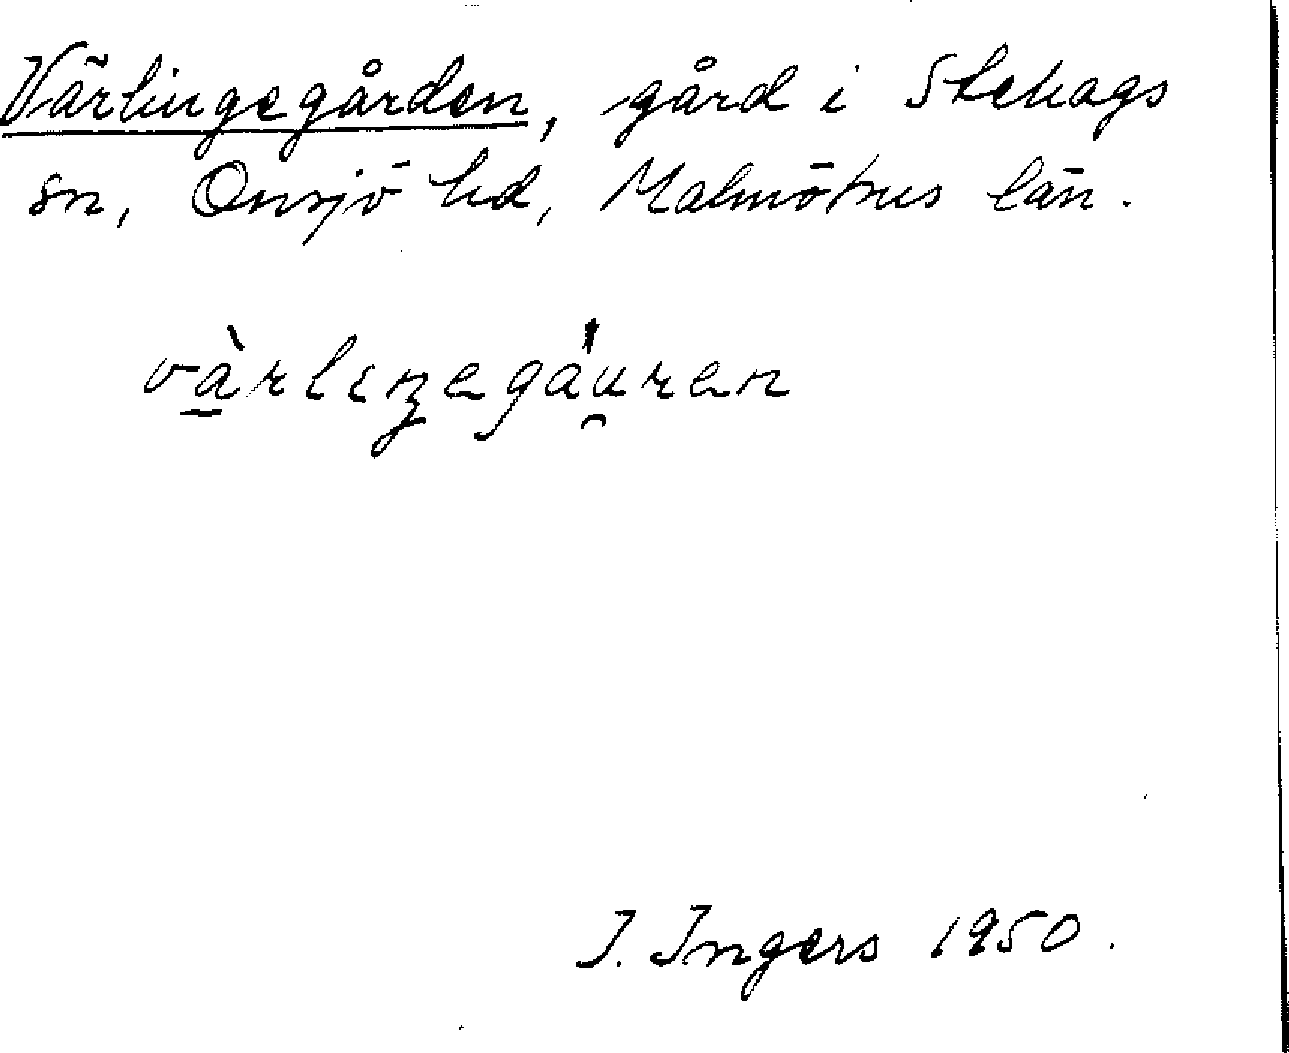 Värlingegården, gård i Stehags
sn, Onsjö hd, Malmöhus län.
vàrlıŋegáuren
I. Ingers 1950.